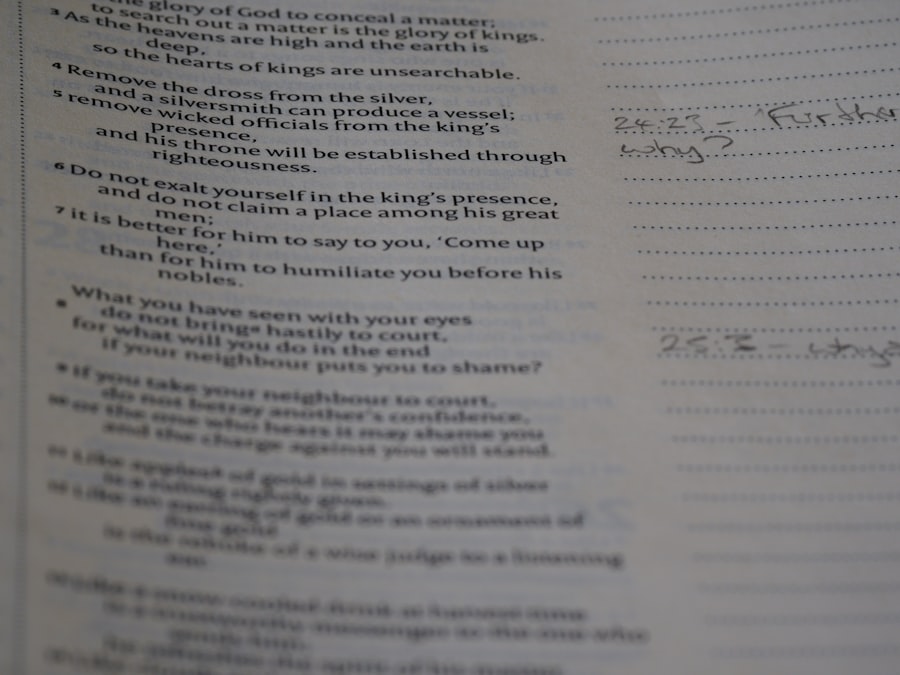 the glory of God to conceal a matter;
to search out a matter is the glory of kings.
3 As the heavens are high and the earth is
deep,
so the hearts of kings are unsearchable.
4 Remove the dross from the silver,
and a silversmith can produce a vessel;
5 remove wicked officials from the king's
presence,
and his throne will be established through
righteousness.
6 Do not exalt yourself in the king's presence,
and do not claim a place among his great
men;
7 it is better for him to say to you, 'Come up
here,'
than for him to humiliate you before his
nobles.
What you have seen with your eyes
8 do not bring hastily to court,
for what will you do in the end
if your neighbour puts you to shame?
9 If you take your neighbour to court,
do not betray another's confidence,
10 or the one who hears it may shame you
and the charge against you will stand.
11 Like apples of gold in settings of silver
is a ruling rightly given.
12 Like an earring of gold or an ornament of
fine gold
is the rebuke of a wise judge to a listening
ear.
24:23 – 'Further
why?
25:2 – why